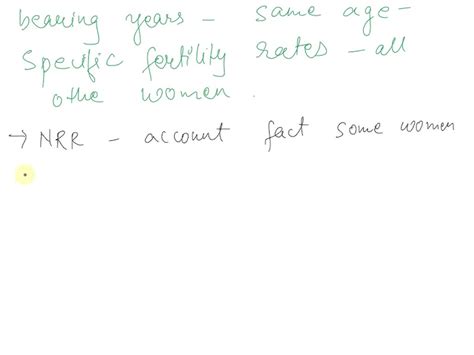 bearing years - same age -
Specific fertility rates - all
othe women.
→ NRR - account fact some women